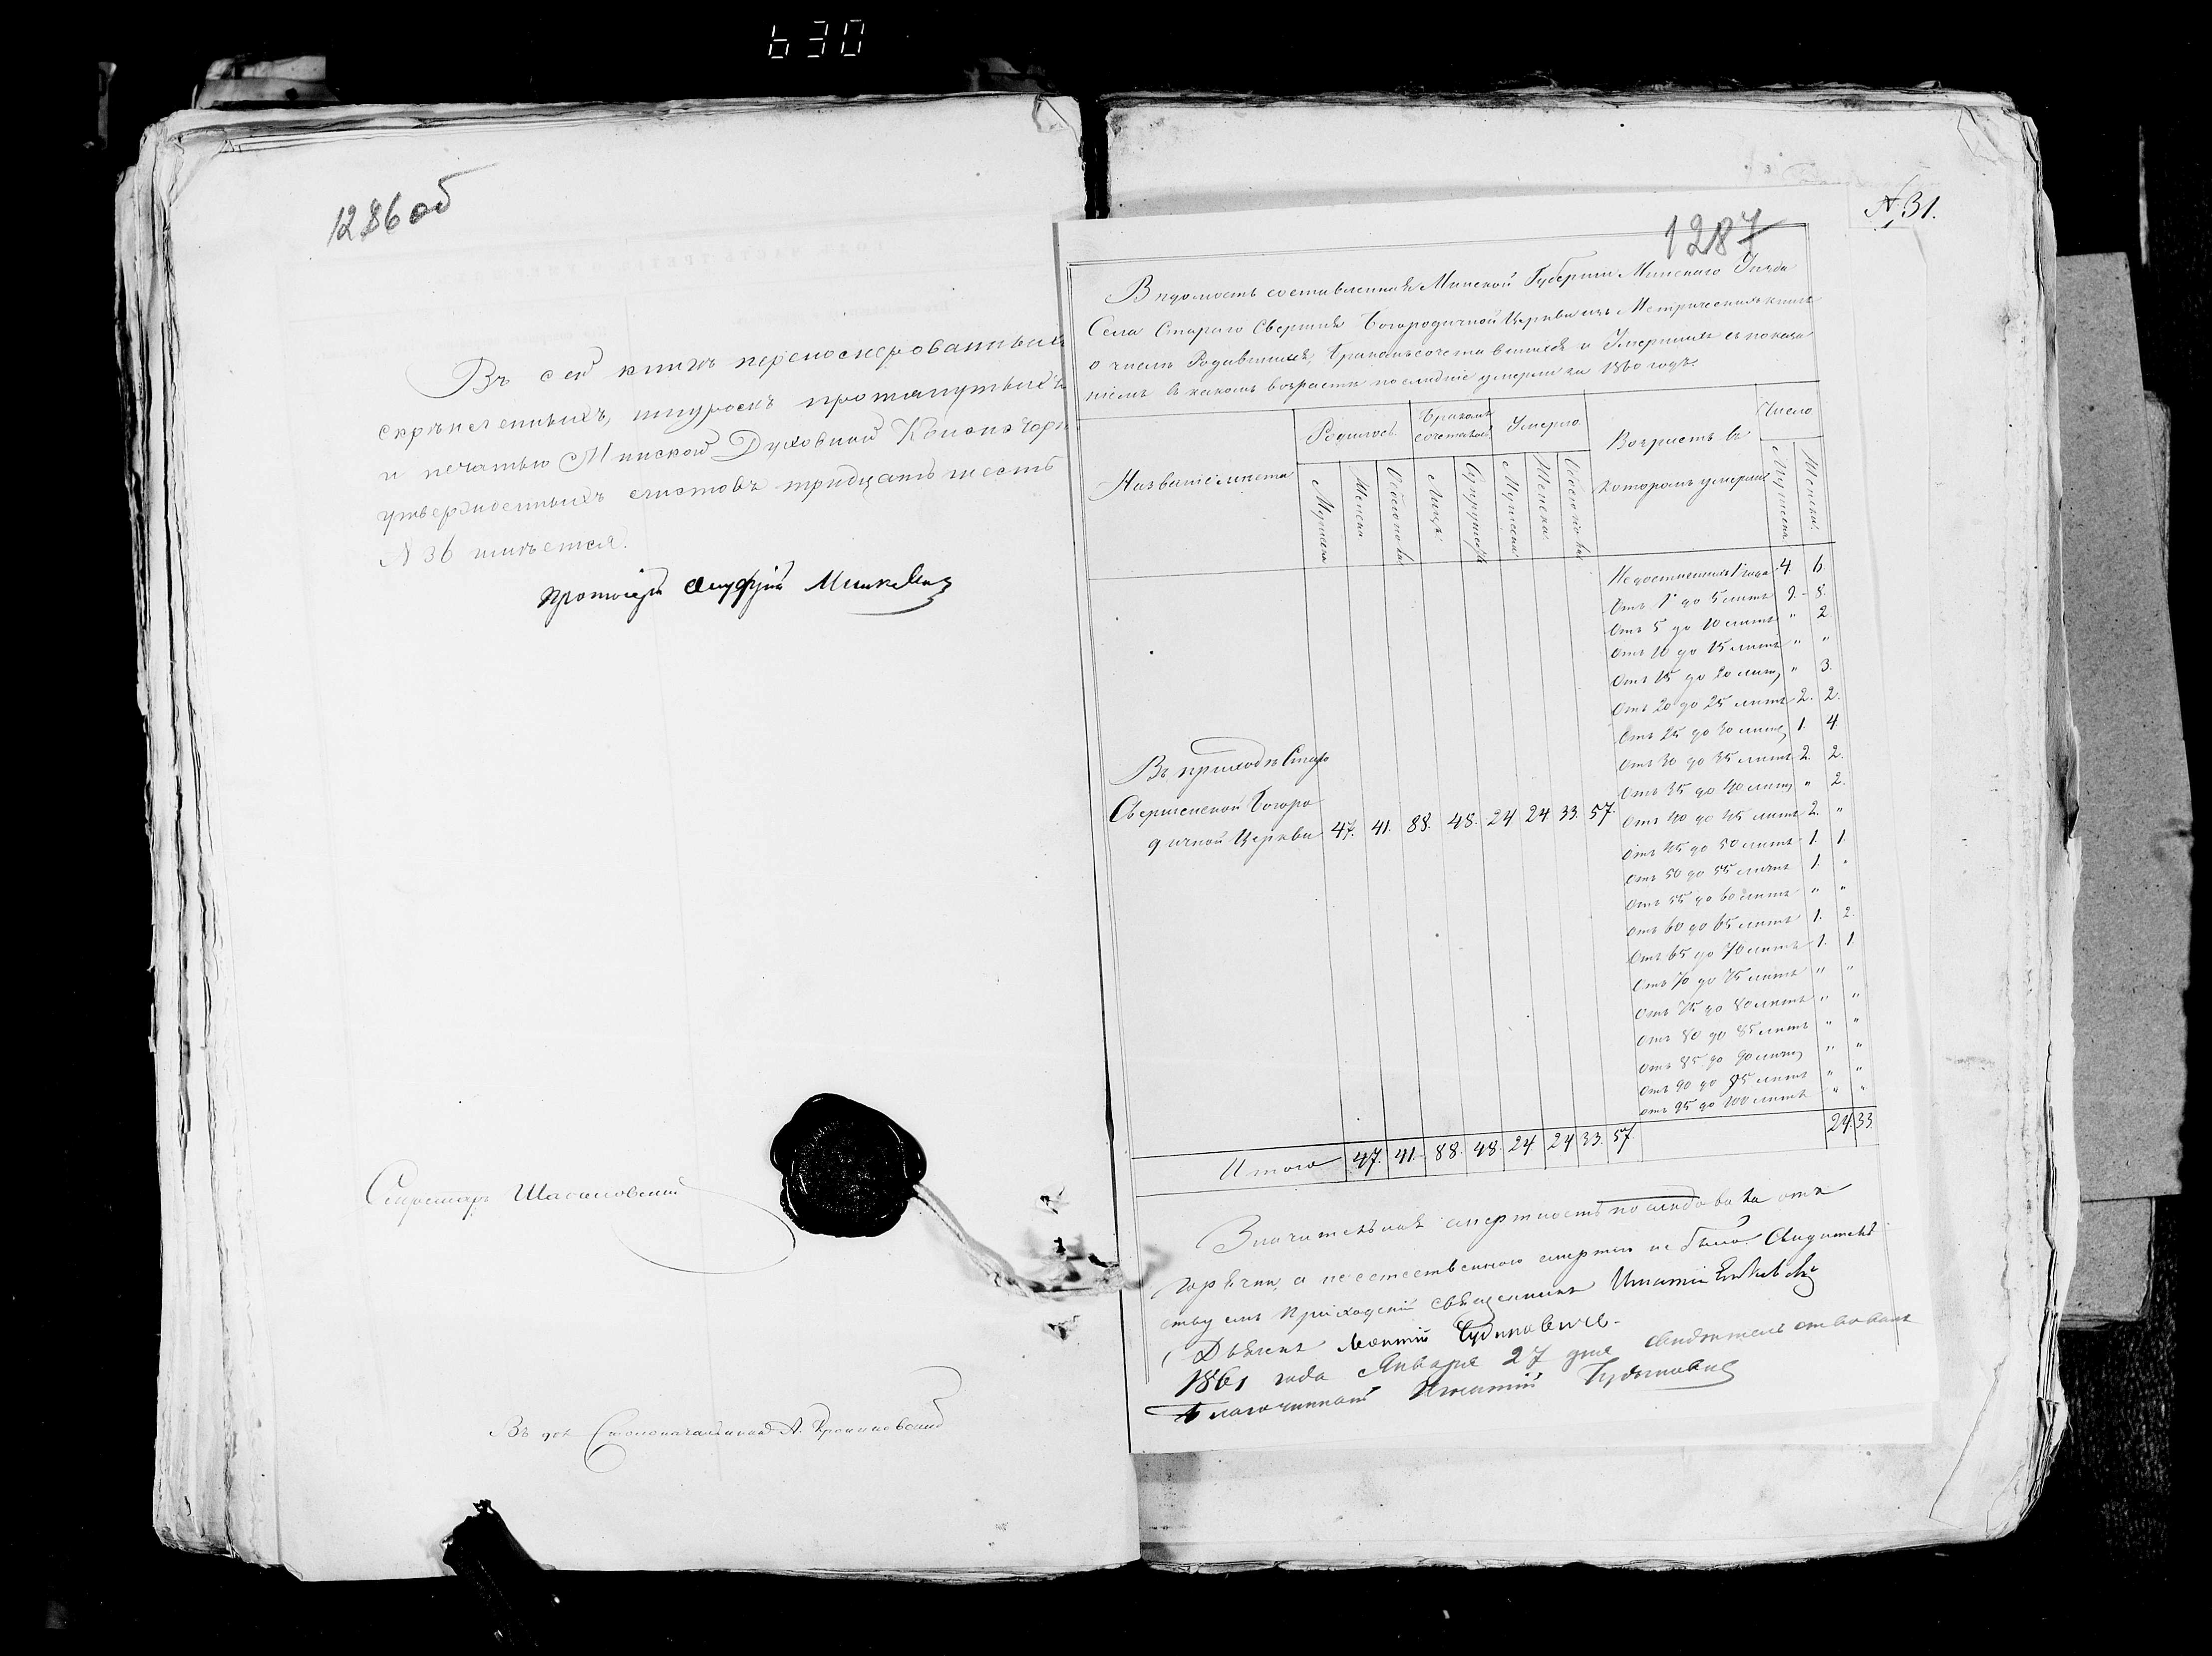 630
1286 об
Въ сей книгѣ перенумерованныхъ
скрѣпленныхъ, шнуромъ протянутыхъ
и печатью Минской Духовной Консистор
утвержденныхъ листовъ тридцать шесть
№ 36 имѣется.
Протоіерей Онуфрій
Секретарь
Въ дол. Столоначальника А.
№ 31.
1287
Вѣдомость составленная Минской Губерніи Минскаго Уѣзда
Села Стараго Свержня Богородичной Церкви изъ Метрическихъ книгъ
о числѣ Родившихся, Бракомъ сочетавшихся и Умершихъ съ показа
ніемъ въ какомъ возрастѣ послѣдніе умерли за 1860 годъ.
Названіе мѣста
Родилось.
Бракомъ сочетались
Умерло.
Возрастъ въ которомъ умерли
Число
Мужеска
Женска
Обоего пола
Лицъ.
Супружес
Мужеска
Женска.
Обоего пола
Мужеска
Женска.
Недостигшихъ 1 года 4. 6.
Отъ 1 до 5 лѣтъ 9. 8.
Отъ 5 до 10 лѣтъ " 2.
Отъ 10 до 15 лѣтъ " "
Отъ 15 до 20 лѣтъ " 3.
Отъ 20 до 25 лѣтъ 2. 2.
Отъ 25 до 30 лѣтъ 1. 4.
Отъ 30 до 35 лѣтъ 2. 2.
Отъ 35 до 40 лѣтъ " 2.
Отъ 40 до 45 лѣтъ 2. "
Отъ 45 до 50 лѣтъ 1. 1.
Отъ 50 до 55 лѣтъ 1. "
Отъ 55 до 60 лѣтъ " "
Отъ 60 до 65 лѣтъ 1. 2.
Отъ 65 до 70 лѣтъ 1. 1.
Отъ 70 до 75 лѣтъ " "
Отъ 75 до 80 лѣтъ " "
Отъ 80 до 85 лѣтъ " "
Отъ 85 до 90 лѣтъ " "
Отъ 90 до 95 лѣтъ " "
Отъ 95 до 100 лѣтъ " "
Въ приходѣ Старо
Сверженской Богоро
дичной Церкви 47. 41. 88. 48. 24. 24. 33. 57.
Итого 47. 41. 88. 48. 24. 24. 33. 57. 24. 33.
Значительная смертность послѣдовала отъ
горячки, а неестественной смерти не было. Свидѣтель
ствуемъ Приходскій Священникъ Игнатій
Дьячекъ
1861 года Января 27 дня свидѣтельствовалъ
Благочинный Игнатій